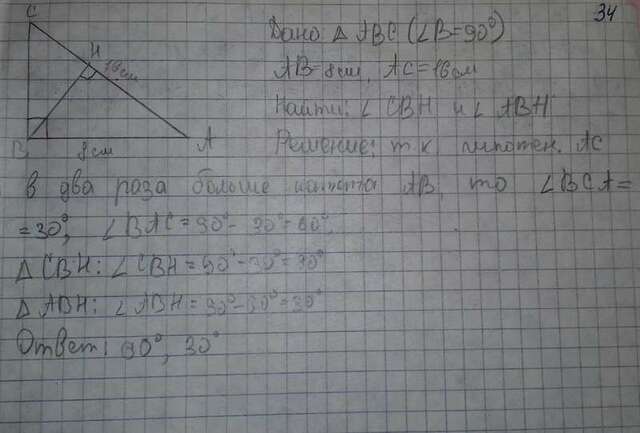 34
C
H
16см
B
8см
A
Дано: Δ ABC (∠B=90°)
AB=8см, AC=16см
Найти: ∠ CBH и ∠ ABH
Решение: т.к. гипотен. AC
в два раза больше катета AB, то ∠BCA=
=30°, ∠BAC=90°-30°=60°.
Δ CBH: ∠CBH=90°-30°=
Δ ABH: ∠ABH=90°-60°=30°
Ответ: 30°